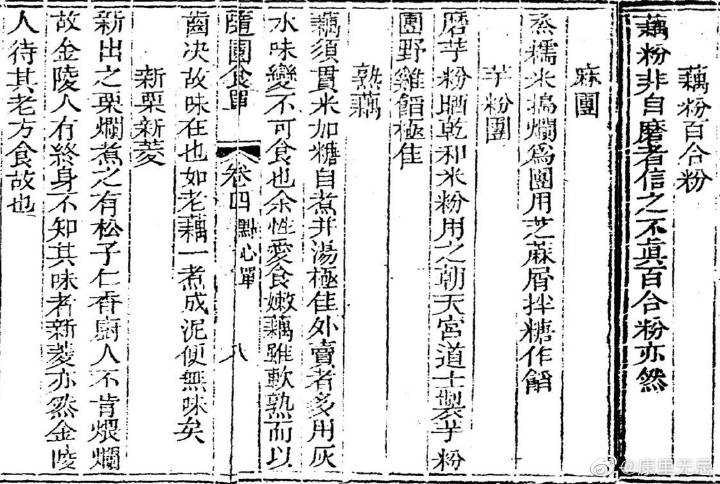 藕粉百合粉
藕粉非自磨者信之不眞百合粉亦然
麻團
蒸糯米搗爛爲團用芝蔴屑拌糖作餡
芋粉團
磨芋粉晒乾和米粉用之朝天宮道士製芋粉
團野雞餡極佳
熟藕
藕須貫米加糖自煮并湯極佳外賣者多用灰
水味變不可食也余性愛食嫩藕雖軟熟而以
隨園食單
卷四點心單
八
齒决故味在也如老藕一煮成泥便無味矣
新栗新菱
新出之栗爛煮之有松子仁香廚人不肯煨爛
故金陵人有終身不知其味者新菱亦然金陵
人待其老方食故也
@康里无忌